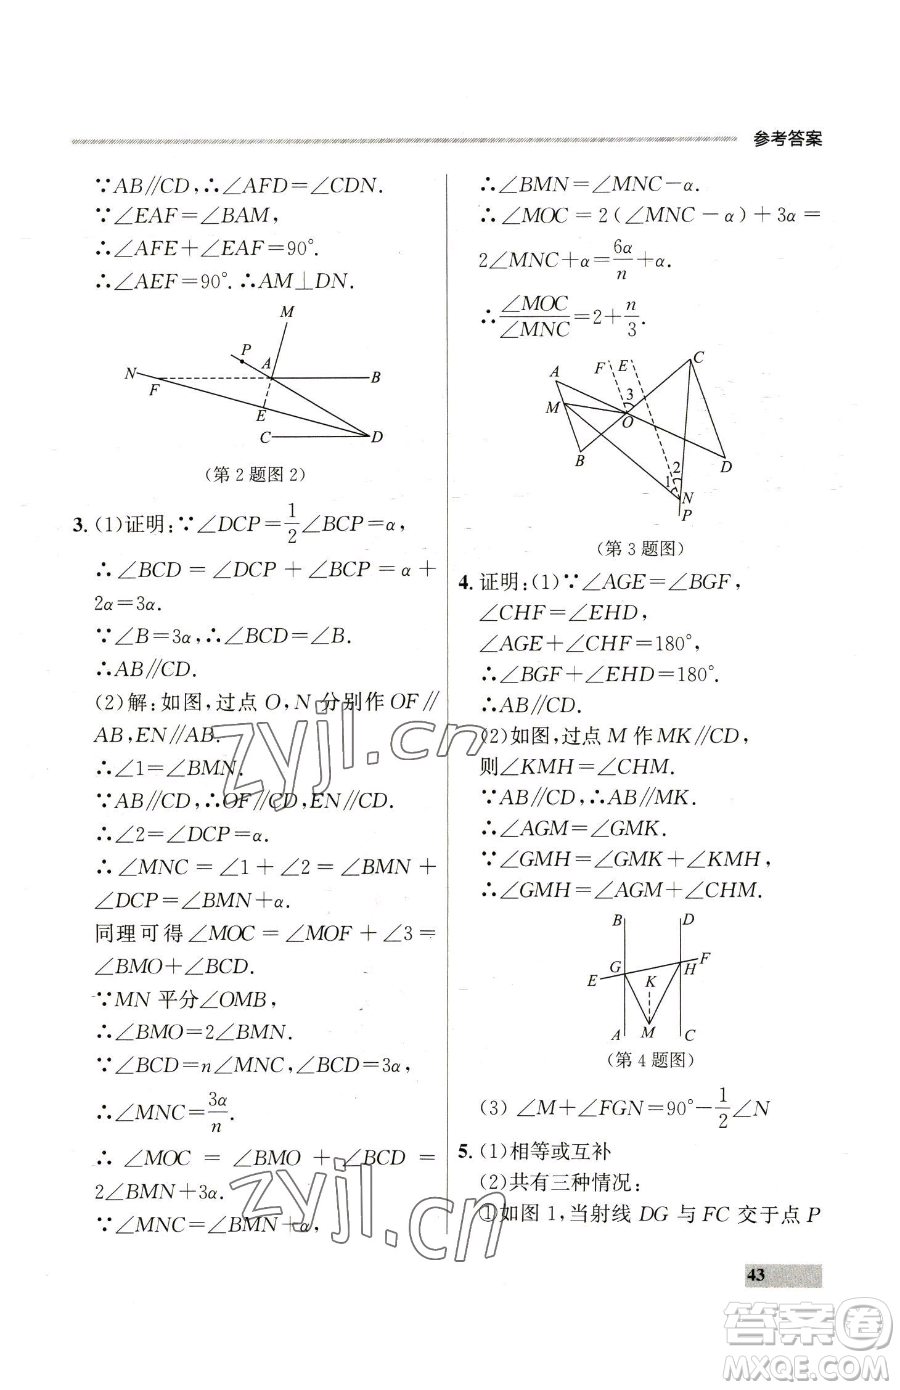 参考答案
∵AB∥CD,∴∠AFD=∠CDN.
∵∠EAF=∠BAM,
∴∠AFE+∠EAF=90°.
∴∠AEF=90°.∴AM⊥DN.
M
P
A
N
F
B
E
C
D
(第2题图2)
3. (1)证明:∵∠DCP=1/2∠BCP=α,
∴∠BCD=∠DCP+∠BCP=α+
2α=3α.
∵∠B=3α,∴∠BCD=∠B.
∴AB∥CD.
(2)解:如图,过点O,N分别作OF∥
AB,EN∥AB.
∴∠1=∠BMN.
∵AB∥CD,∴OF∥CD,EN∥CD.
∴∠2=∠DCP=α.
∴∠MNC=∠1+∠2=∠BMN+
∠DCP=∠BMN+α.
同理可得∠MOC=∠MOF+∠3=
∠BMO+∠BCD.
∵MN平分∠OMB,
∴∠BMO=2∠BMN.
∵∠BCD=n∠MNC,∠BCD=3α,
∴∠MNC=3α/n.
∴∠MOC=∠BMO+∠BCD=
2∠BMN+3α.
∵∠MNC=∠BMN+α,
∴∠BMN=∠MNC-α.
∴∠MOC=2(∠MNC-α)+3α=
2∠MNC+α=6α/n+α.
∴∠MOC/∠MNC=2+n/3.
A
F
E
C
M
3
O
B
D
2
1
N
P
(第3题图)
4. 证明:(1)∵∠AGE=∠BGF,
∠CHF=∠EHD,
∠AGE+∠CHF=180°,
∴∠BGF+∠EHD=180°.
∴AB∥CD.
(2)如图,过点M作MK∥CD,
则∠KMH=∠CHM.
∵AB∥CD,∴AB∥MK.
∴∠AGM=∠GMK.
∵∠GMH=∠GMK+∠KMH,
∴∠GMH=∠AGM+∠CHM.
B
D
G
F
E
K
H
A
M
C
(第4题图)
(3) ∠M+∠FGN=90°-1/2∠N
5. (1)相等或互补
(2)共有三种情况:
①如图1,当射线DG与FC交于点P
43
zyjl.cn
zyjl.cn
答案圈
MXQE.COM